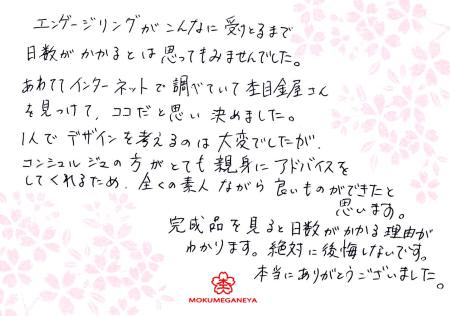 エンゲージリングがこんなに受けとるまで
日数がかかるとは思ってもみませんでした。
あわててインターネットで調べていて杢目金屋さん
を見つけて、ココだと思い決めました。
1人でデザインを考えるのは大変でしたが、
コンシェルジュの方がとても親身にアドバイスを
してくれるため、全くの素人ながら良いものができたと
思います。
完成品を見ると日数がかかる理由が
わかります。絶対に後悔しないです。
本当にありがとうございました。
MOKUMEGANEYA